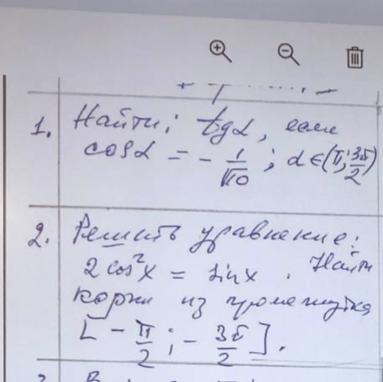 1. Найти: tgα, если
cosα = - 1/√10 ; α∈(π; 3π/2)
2. Решить уравнение:
2cos²x = sinx. Найти
корни из промежутка
[- π/2 ; - 3π/2].